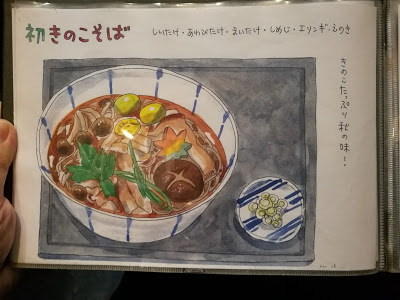 初きのこそば
しいたけ・あわびたけ・まいたけ・しめじ・エリンギ・えのき
きのこたっぷり秋の味!